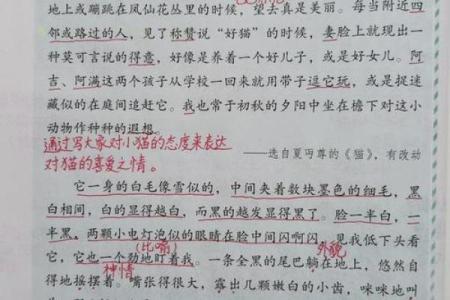 地上或蹦跳在凤仙花丛里的时候，望去真是美丽。每当附近四
邻或路过的人，见了称赞说“好猫”的时候，妻脸上就现出一
种莫可言说的得意，好像是养着一个好儿子，或是好女儿。阿
吉、阿满这两个孩子从学校一回来就用带子逗它玩，或是捉迷
藏似的在庭间追赶它。我也常于初秋的夕阳中坐在檐下对这小
动物作种种的遐想。
通过写大家对小猫的态度来表达
对猫的喜爱之情。
——选自夏丏尊的《猫》，有改动
它一身的白毛像雪似的，中间夹着数块墨色的细毛，黑
白相间，白的显得越白，而黑的越发显得黑了。脸一半白，一
半黑，两颗小电灯泡似的眼睛在脸中间闪啊闪，见我低下头看
(比喻)
外貌
它，它也一个劲地盯着我。一条全黑的尾巴躺在地上，悠然自
神情
得地摇摆着。嘴张得很大，露出几颗嫩白的小齿，咪咪地叫